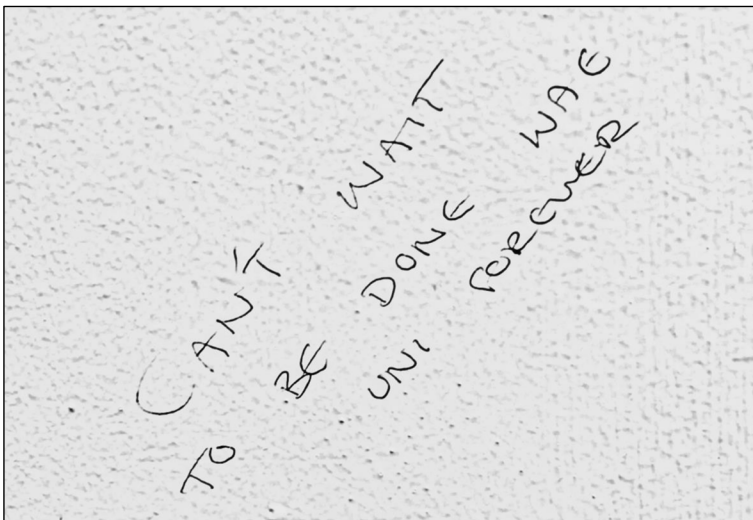 CAN'T WAIT
TO BE DONE WAE
UNI FOREVER